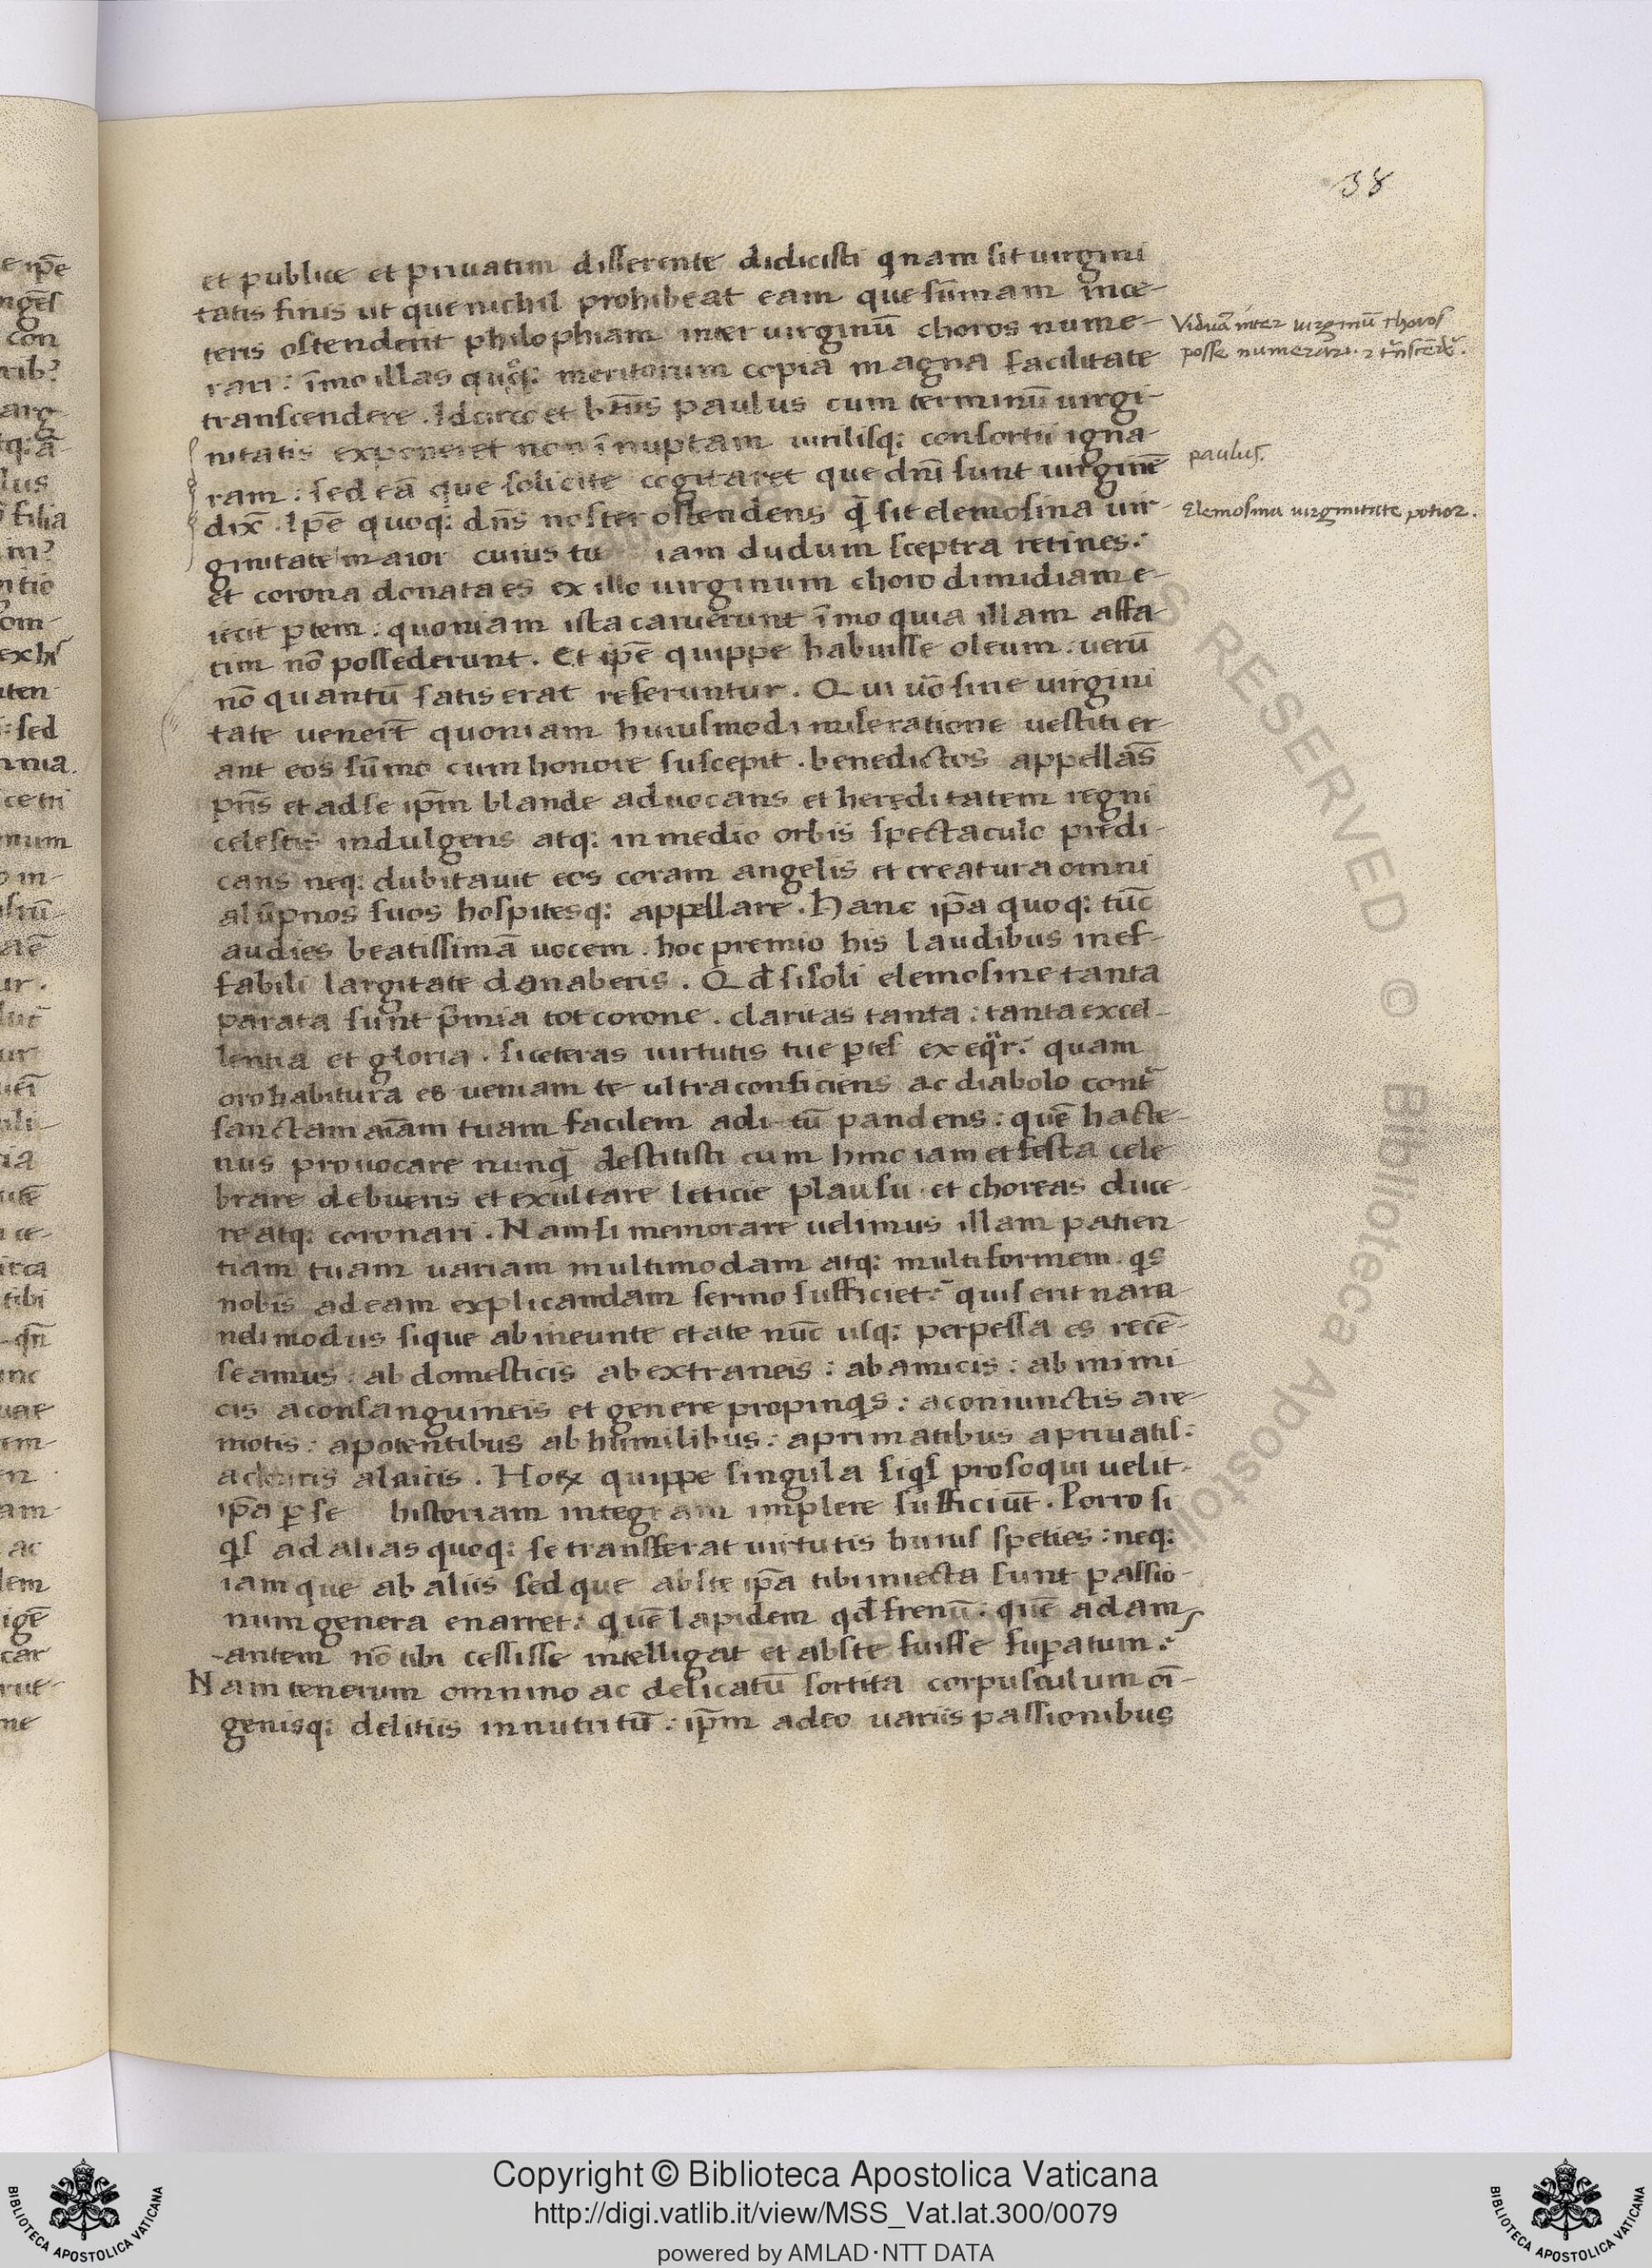 38
et publice et priuatim disserente didicisti qnam sit uirgini
tatis finis ut que nichil prohibeat eam que sūmam in ce-
teris ostenderit philophiam inter uirginū choros nume-
rari: īmo illas quoq: meritorum copia magna facilitate
transcendere. Idcirco et btūs paulus cum terminū uirgi-
nitatis exponeret non īnuptam uirilisq: consortii igna-
ram: sed eā que solicite cogitaret que dnī sunt uirginē
dix̄. Ipē quoq: dn̄s noster ostendens q̄ sit elemosina uir-
ginitate maior cuius tu iam dudum sceptra retines:
et corona donata es ex illo uirginum choro dimidiam e-
iecit ꝑtem: quoniam ista caruerunt īmo quia illam affa-
tim nō possederunt. Et ipē quippe habuisse oleum: uerū
nō quantū satis erat referuntur. Qui uō sine uirgini
tate uenert̄ quoniam huiusmodi miseratione uestiti er-
ant eos sūmo cum honore suscepit. benedictos appellās
pr̄is et ad se ipm̄ blande aduocans et hereditatem regni
celestis indulgens atq: in medio orbis spectaculo predi-
cans neq: dubitauit eos coram angelis et creatura omni
alūpnos suos hospitesq: appellare. Hanc ipā quoq: tūc
audies beatissimā uocem. hoc premio his laudibus inef-
fabili largitate donaberis. Qđ si soli elemosine tanta
parata sunt p̄mia tot corone. claritas tanta: tanta excel-
lentia et gloria. si ceteras uirtutis tue ꝑtes exeqr̄: quam
oro habitura es ueniam te ultra conficiens ac diabolo cont̄
sanctam aīam tuam facilem adi-tū pandens: quē hacte-
nus prouocare nunq̄ destitisti cum hinc iam et festa cele
brare debueris et exultare leticie plausu et choreas duce-
re atq: coronari. Nam si memorare uelimus illam patien-
tiam tuam uariam multimodam atq: multiformem. qis
nobis ad eam explicandam sermo sufficiet: quis erit nara-
ndi modus si que ab ineunte etate nūc usq: perpessa es recē-
seamus: ab domesticis ab extraneis: ab amicis: ab inimi
cis a consanguineis et genere propinqis: a coniunctis a re-
motis: a potentibus ab humilibus: a primatibus a priuatis:
a clericis a laicis. Hoꝝ quippe singula siqis prosoqui uelit.
ipā ꝑ se historiam integram implere sufficiūt. Porro si
qis ad alias quoq: se transferat uirtutis huius speties: neq:
iam que ab aliis sed que abste ipā tibi iniecta sunt passio-
num genera enarret: quē lapidem qđ frenū: quē adam
-antem nō tibi cessisse intelligat et abste fuisse suꝑatum:
Nam tenerum omnino ac delicatū sortita corpusculum oī-
genisq: delitiis innutritū: ipm̄ adeo uariis passionibus
Viduā inter uirginū choros
posse numerari. ⁊ tn̄scēdē.
paulus.
Elemosina uirginitate potior.
Copyright © Biblioteca Apostolica Vaticana
http://digi.vatlib.it/view/MSS_Vat.lat.300/0079
powered by AMLAD·NTT DATA
BIBLIOTECA APOSTOLICA VATICANA
BIBLIOTECA APOSTOLICA VATICANA